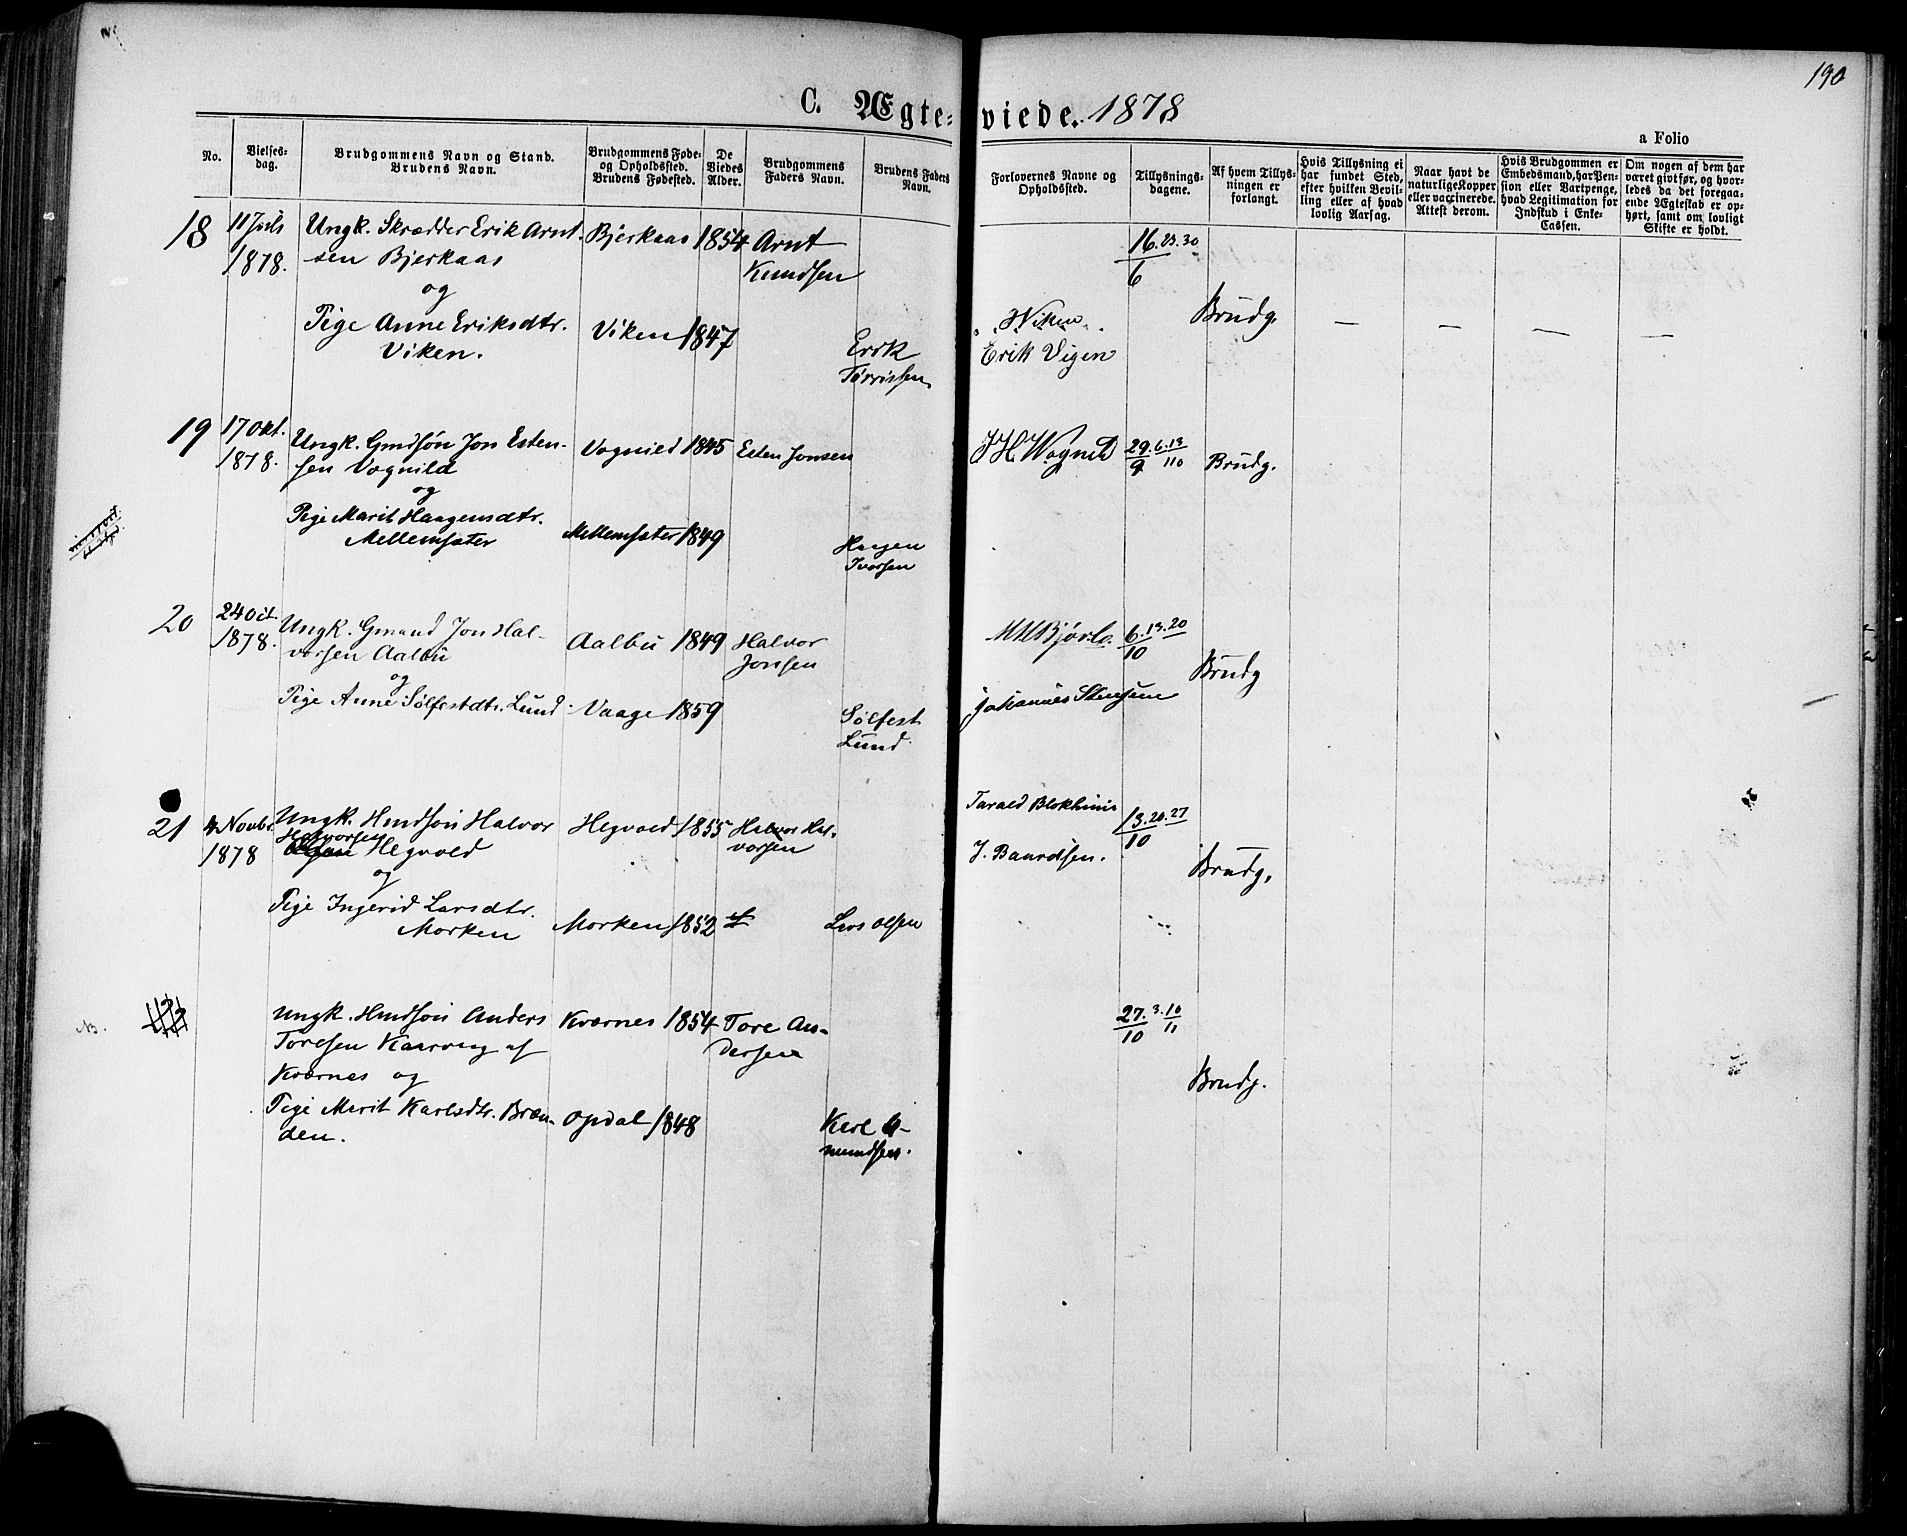 190
C. Ægte-viede. 1878
a Folio
No.
Vielses-
dag.
Brudgommens Navn og Stand.
Brudens Navn.
Brudgommens Føde-
og Opholdssted.
Brudens Fødested.
De
Viedes
Alder.
Brudgommens
Faders Navn.
Brudens Faders
Navn.
Forlovernes Navne og
Opholdssted.
Tillysnings-
dagene.
Af hvem Tillys-
ningen er
forlangt.
Hvis Tillysning ei
har fundet Sted,
efter hvilken Bevil-
ling eller af hvad
lovlig Aarsag.
Naar havt de
naturlige Kopper
eller vaccinerede.
Attest derom.
Hvis Brudgommen er
Embedsmand, har Pen-
sion eller Vartpenge,
hvad Legitimation for
Indskud i Enke-
Cassen.
Om nogen af dem har
været givt før, og hvor-
ledes da det foregaa-
ende Ægteskab er op-
hørt, samt om lovligt
Skifte er holdt.
18
11 Juli
1878.
Ungk. Skrædder Erik Arnt-
sen Bjerkaas
og
Pige Anne Eriksdtr.
Viken.
Bjerkaas
Viken
1854
1847
Arnt
Knudsen
Erik
Tørrissen
Wiken
Erik Vigen
16. 23. 30
6
Brudg.
— — — —
19
17 Okt.
1878.
Ungk. Gmdsøn Jon Esten-
sen Vognild
og
Pige Marit Haagensdtr.
Mellemsæter
Vognild
Mellemsæter
1845
1849
Esten Jonsen
Haagen
Iversen
29. 6. 13
9 10
Brudg.
20
24 Oct.
1878.
Ungk. Gmand Jon Hal-
vorsen Aalbu
og
Pige Anne Sølfestdtr. Lund
Aalbu
Vaage
1849
1859
Halvor
Jonsen
Sølfest
Lund
Johannes Stensen
6. 13. 20
10
Brudg
21
4 Novbr.
1878
Ungk. Hmdsøn Halvor
Halvorsen
Hegvold
og
Pige Ingerid Larsdtr.
Morken
Hegvold
Morken
1855
1852
Halvor Hal-
vorsen
Lars Olsen
J. Baardsen.
13. 20. 27
10
Brudg.
NB.
Ungk. Hmdsøn Anders
Toresen Kaarvag af
Kværnes og
Pige Marit Karlsdtr. Bræn-
den.
Kværnes
Opdal
1854
1848
Tore An-
dersen
Karl A-
mundsen.
27. 3. 10
10 11
Brudg.